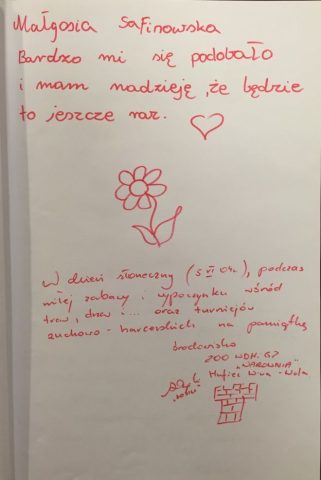 Małgosia Safinowska
Bardzo mi się podobało
i mam nadzieję, że będzie
to jeszcze raz.
W dzień słoneczny (5 VI 04r.), podczas
miłej zabawy i wypoczynku wśród
traw, drzew .... oraz turniejów
zuchowo-harcerskich na pamiątkę
środowisko
200 WDH. GZ
"WAROWNIA"
Hufiec W-wa - Wola